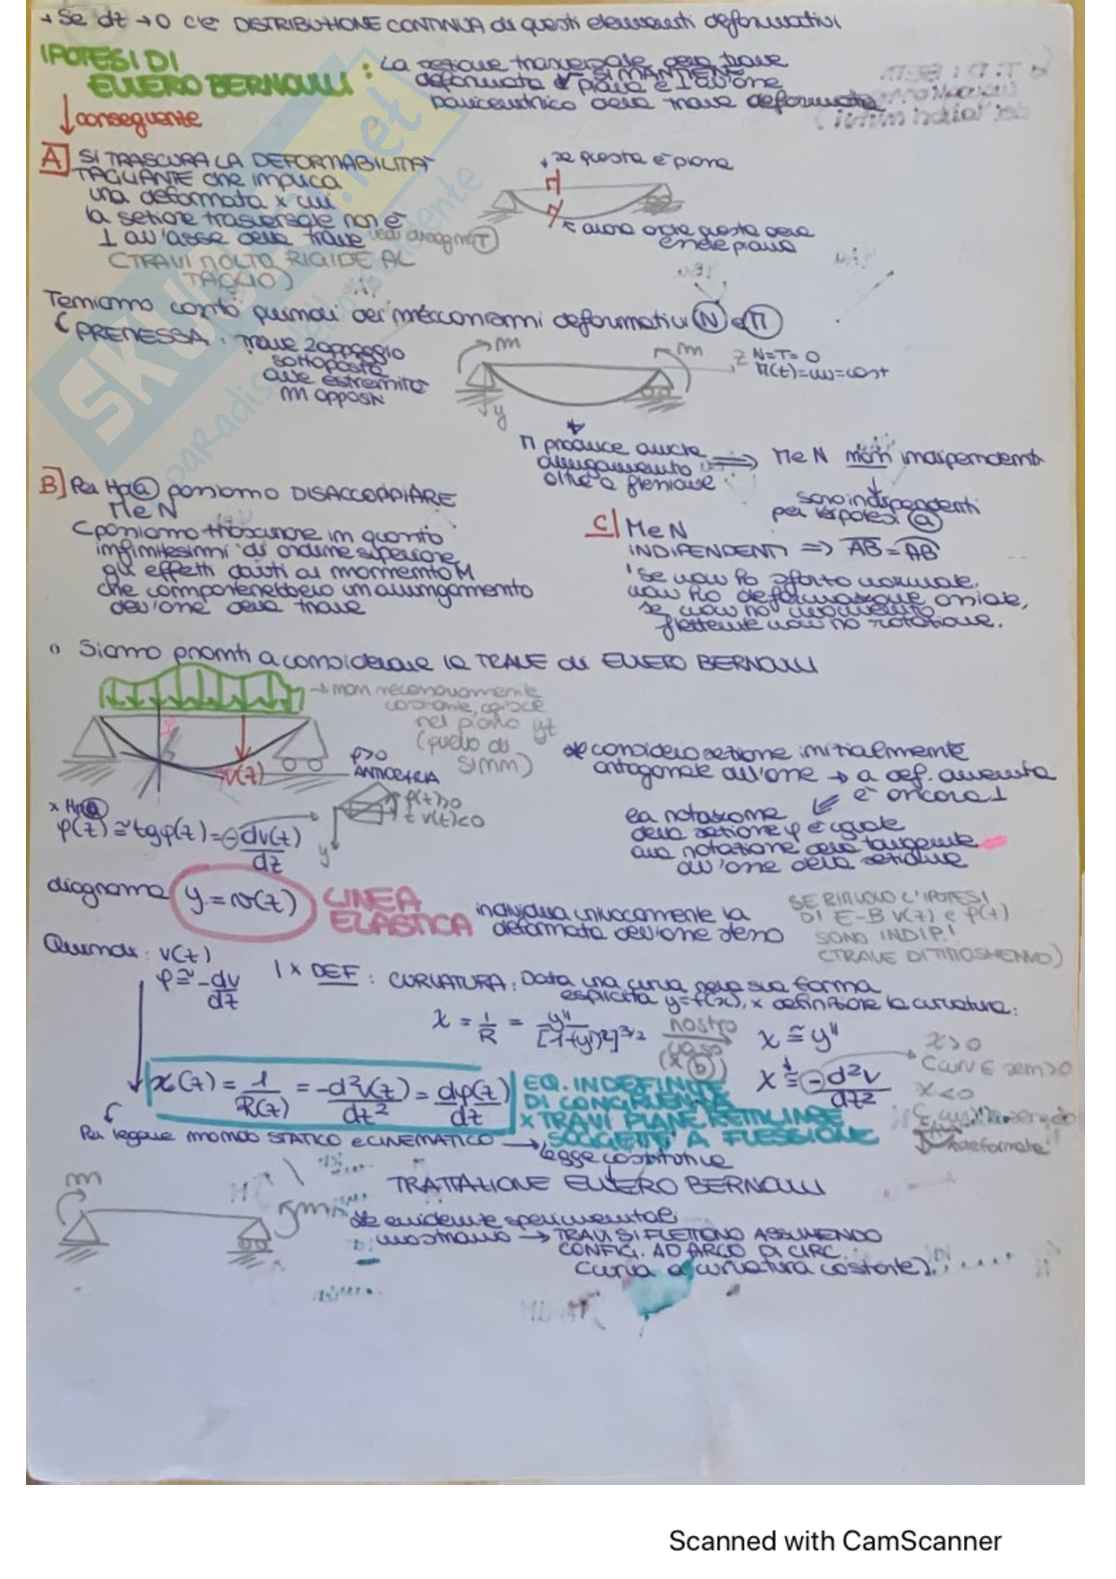 → Se dz → 0 c'è DISTRIBUZIONE CONTINUA di questi elementi deformativi
IPOTESI DI
EULERO BERNOULLI : La sezione trasversale della trave
deformata SI MANTIENE piana e ⊥ all'one
baricentrico della trave deformata
↓ conseguente
A] SI TRASCURA LA DEFORMABILITÀ
TAGLIANTE che implica
una deformata x cui
la sezione trasversale non è
⊥ all'asse della trave vedi analogna T
(TRAVI MOLTO RIGIDE AL
TAGLIO)
se questa è piana
allora anche questa deve
essere piana
Teniamo conto quindi dei meccanismi deformativi N e M
PREMESSA: trave 2 appoggio
sottoposta
alle estremità
m opposti
m
m
z N=T=0
M(z)=m=cost
y
M produce anche
allungamento
oltre a flessione
⟹ M e N non indipendenti
sono indipendenti
per ipotesi a
B] Per Hp a possiamo DISACCOPPIARE
M e N
possiamo trascurare in quanto
infinitesimi di ordine superiore
gli effetti dovuti al momento M
che comporterebbero un allungamento
dell'one della trave
C] M e N
INDIPENDENTI ⟹ AB = AB
Se non ho sforzo normale,
non ho deformazione assiale,
se non ho momento
flettente non ho rotazione.
• Siamo pronti a considerare la TRAVE di EULERO BERNOULLI
→ non necessariamente
costante, agisce
nel piano yz
(quello di
SIMM)
v(z)
φ>0
ANTIORARIA
φ(z)>0
z v(z)<0
y
se considero sezione inizialmente
ortogonale all'one → a def. avvenuta
è ancora ⊥
la rotazione
della sezione φ è uguale
alla rotazione della tangente
all'one della sezione
x Hp a
φ(z) ≅ tgφ(z) = - dv(z)
dz
diagramma y = v(z) LINEA
ELASTICA individua univocamente la
deformata dell'one stesso
SE RIMUOVO L'IPOTESI
DI E-B v(z) e φ(z)
SONO INDIP.!
(TRAVE DI TIMOSHENKO)
Quindi: v(z)
φ ≅ - dv
dz
1 x DEF: CURVATURA: Data una curva nella sua forma
esplicita y=f(x), x definizione la curvatura:
χ = 1/R = y''/[1+(y')²]^3/2 nostro caso (x b) χ ≅ y''
χ ≅ - d²v
dz²
χ>0
χ<0
χ(z) = 1/R(z) = -d²v(z)/dz² = dφ(z)/dz
EQ. INDEFINITE
DI CONGRUENZA
x TRAVI PIANE RETTILINEE
SOGGETTE A FLESSIONE
Per legare mondo STATICO e CINEMATICO → legge costitutiva
TRATTAZIONE EULERO BERNOULLI
m
m
evidenze sperimentali
mostrano → TRAVI SI FLETTONO ASSUMENDO
CONFIG. AD ARCO DI CIRC.
curva a curvatura costante
Scanned with CamScanner